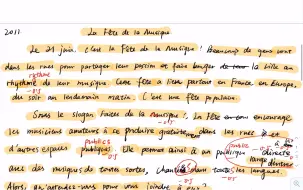 2011 La Fête de la Musique
Le 21 juin, c'est la Fête de la Musique! Beaucoup de gens vont
dans les rues pour partager leur passion et faire bouger la ville au
rythme
rhythme de leur musique. Cette fête a lieu partout en France, en Europe,
-0'5
du soir au lendemain matin. C'est une fête populaire.
Sous le slogan Faites de la musique!, la Fête encourage
les musiciens amateurs à se produire gratuitement dans les rues et
publics
d'autres espaces publiques. Elle permet ainsi à un public
-0'5
avec des musiques de toutes sortes, dans toutes les langues.
Alors, qu'attendez-vous pour vous joindre à eux?